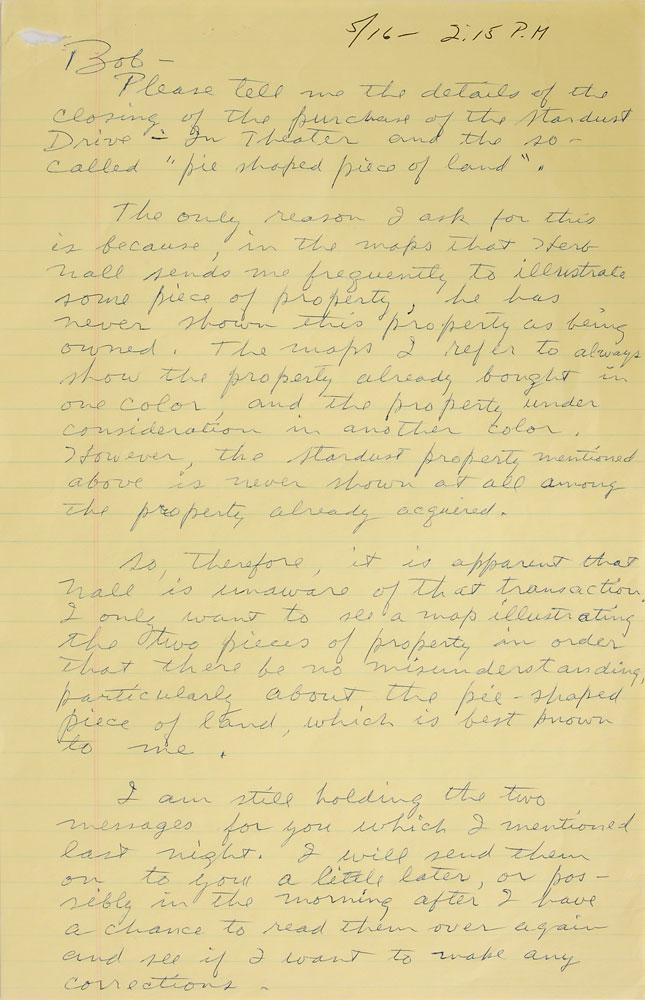 5/16 - 2:15 P.M
Bob -
Please tell me the details of the
closing of the purchase of the Stardust
Drive - In Theater and the so -
called "pie shaped piece of land".
The only reason I ask for this
is because, in the maps that Herb
Nall sends me frequently to illustrate
some piece of property, he has
never shown this property as being
owned. The maps I refer to always
show the property already bought in
one color, and the property under
consideration in another color.
However, the Stardust property mentioned
above is never shown at all among
the property already acquired.
So, therefore, it is apparent that
Nall is unaware of that transaction.
I only want to see a map illustrating
the two pieces of property in order
that there be no misunderstanding,
particularly about the pie - shaped
piece of land, which is best known
to me.
I am still holding the two
messages for you which I mentioned
last night. I will send them
on to you a little later, or pos -
sibly in the morning after I have
a chance to read them over again
and see if I want to make any
corrections -